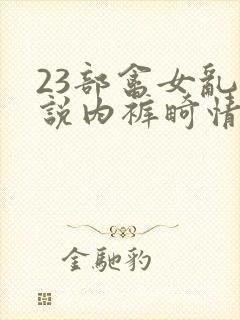 23部畲女乱
説内裤畸情
金馳豹